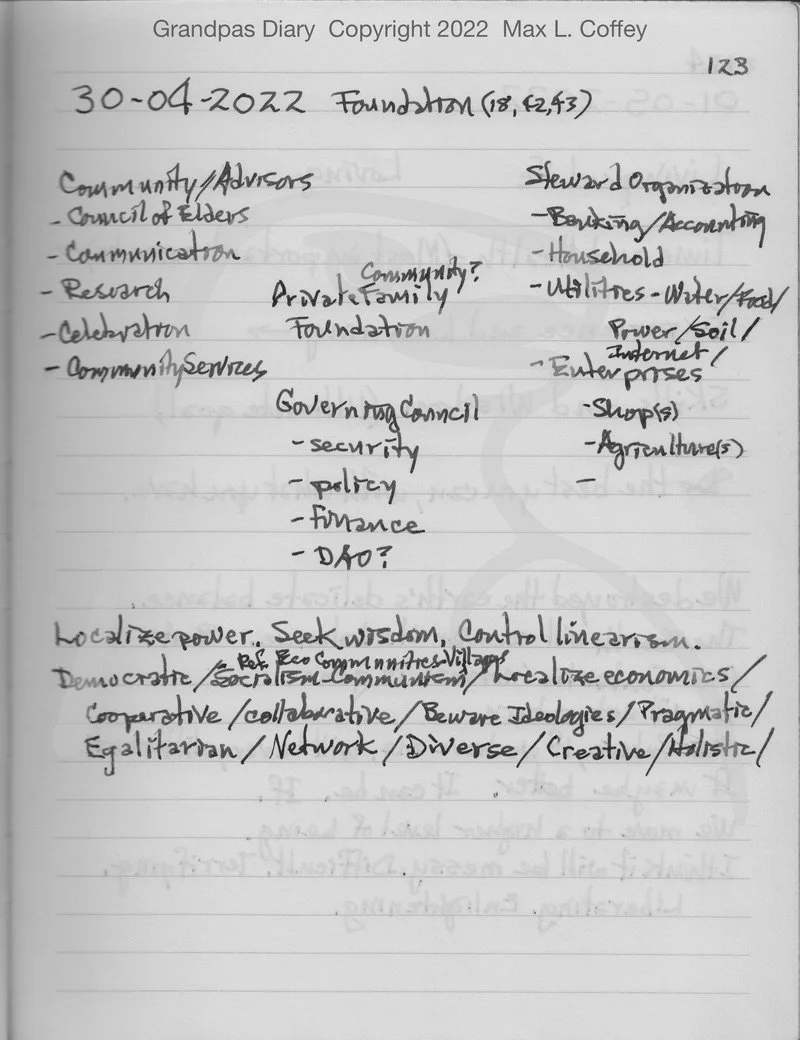 Grandpas Diary Copyright 2022 Max L. Coffey
123
30-04-2022 Foundation (18, 42, 43)
Community/Advisors
- Council of Elders
- Communication
- Research
- Celebration
- Community Services
Community?
Private Family
Foundation
Governing Council
- security
- policy
- finance
- DAO?
Steward Organization
- Banking/Accounting
- Household
- Utilities - Water/Food/
Power/Soil/
Internet/
- Enterprises
- Shop(s)
- Agriculture(s)
-
Localize power. Seek wisdom, Control linearism.
- Ref. Eco Communities-Villages
Democratic/Socialism-Communism/Localize economics/
Cooperative/collaborative/Beware Ideologies/Pragmatic/
Egalitarian/Network/Diverse/Creative/Holistic/